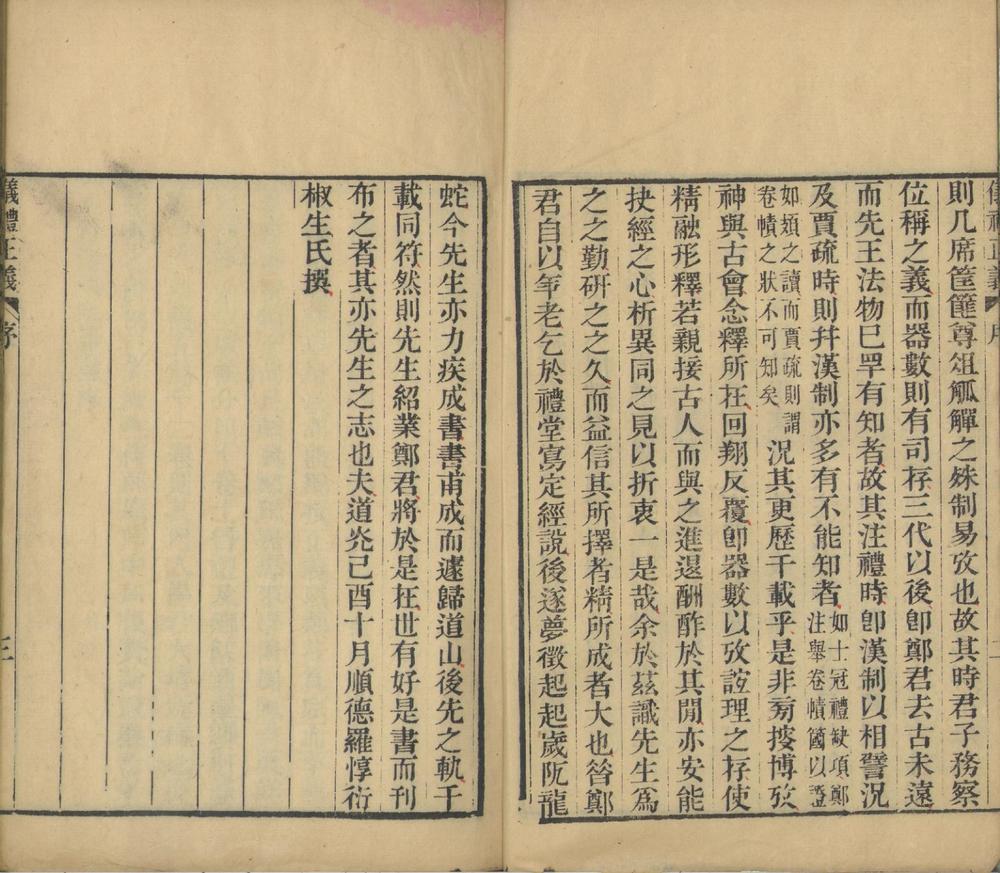 則几席筐篚尊俎觚觶之殊制易攷也故其時君子務察
位稱之義而器數則有司存三代以後卽鄭君去古未遠
而先王法物已罕有知者故其注禮時卽漢制以相譬況
及賈疏時則幷漢制亦多有不能知者如士冠禮缺項鄭
注舉卷幘簂以證
如頍之讀而賈疏則謂
卷幘之狀不可知矣
況其更歷千載乎是非旁搜博攷
神與古會念釋所在回翔反覆卽器數以攷誼理之存使
精融形釋若親接古人而與之進退酬酢於其閒亦安能
抉經之心析異同之見以折衷一是哉余於茲識先生爲
之之勤硏之之久而益信其所擇者精所成者大也昝鄭
君自以年老乞於禮堂寫定經說後遂夢徵起起歲阨龍
儀禮正義
序
三
蛇今先生亦力疾成書書甫成而遽歸道山後先之軌千
載同符然則先生紹業鄭君將於是在世有好是書而刊
布之者其亦先生之志也夫道光己酉十月順德羅惇衍
椒生氏撰